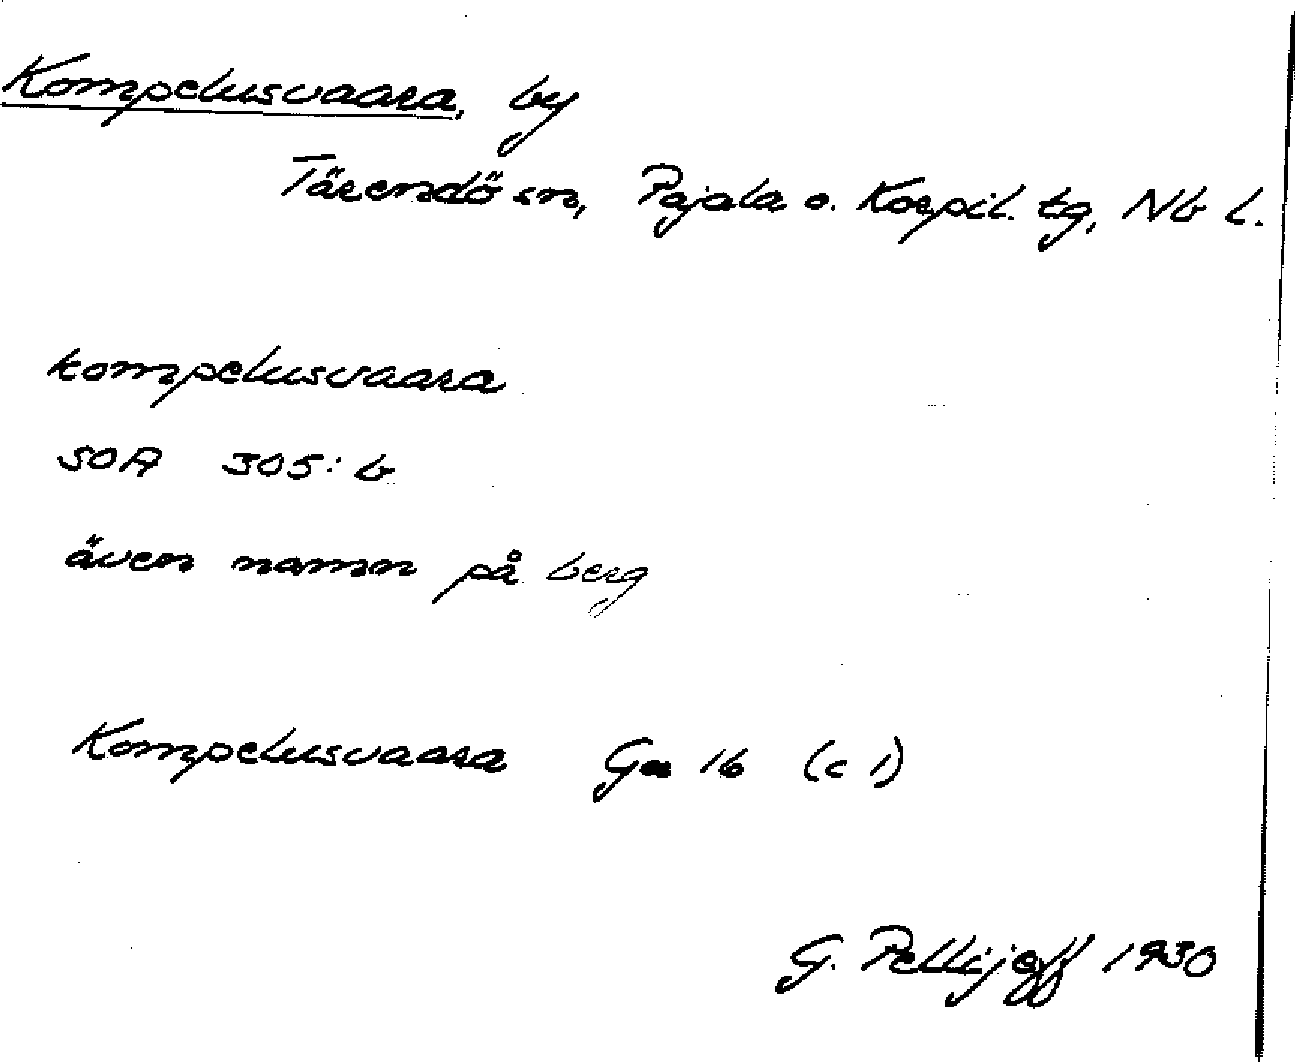 Kompelusvaara, by
Tärendö sn, Pajala o. Korpil. tg, Nb l.
kompelusvaara
SOA 305: b
även namn på berg
Kompelusvaara Ga 16 (c 1)
G. Pellijeff 1930